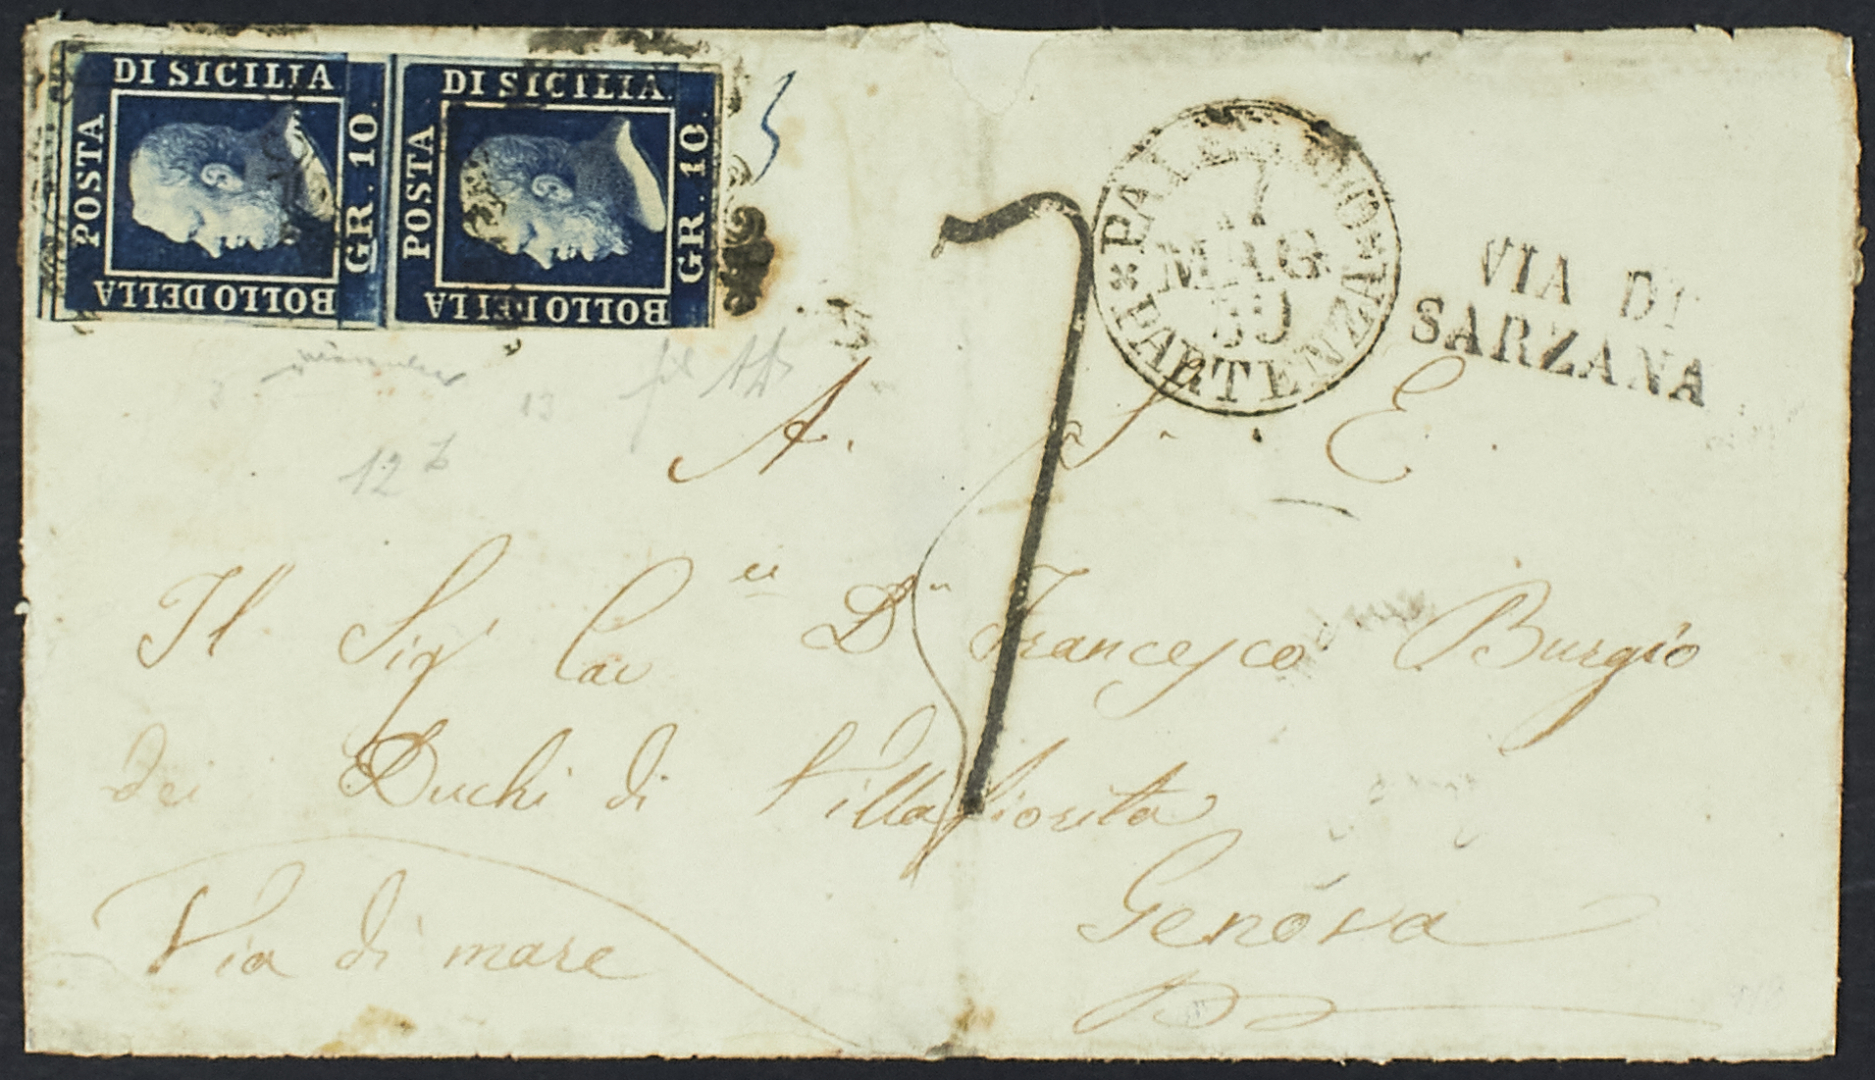 DI SICILIA
POSTA
GR. 10.
BOLLO DELLA
DI SICILIA.
POSTA
GR. 10.
BOLLO DELLA
PALERMO PARTENZA
7
MAG
VIA DI
SARZANA
7
12
13
A. S. E.
Il Sig.r Cav.er D.n Francesco Burgio
dei Duchi di Villafiorita
Genova
Via di mare